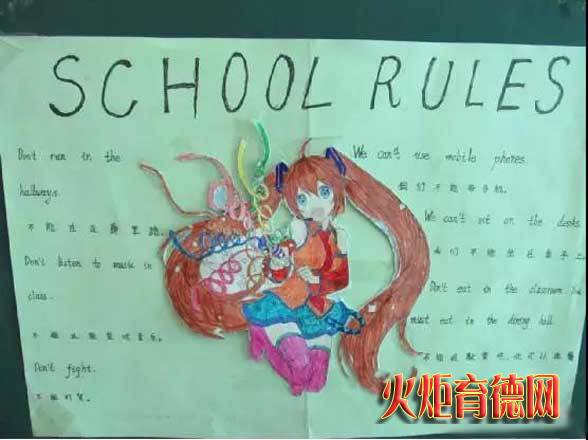 SCHOOL RULES
Don't run in the
hallways.
不能在走廊里跑.
Don't listen to music in
class.
不能在班里听音乐.
Don't fight.
不能打架.
We can't use mobile phones.
我们不能带手机.
We can't sit on the desks.
我们不能坐在桌子上
Don't eat in the classroom.
must eat in the dining hall.
不能在教室吃,
火炬育德网